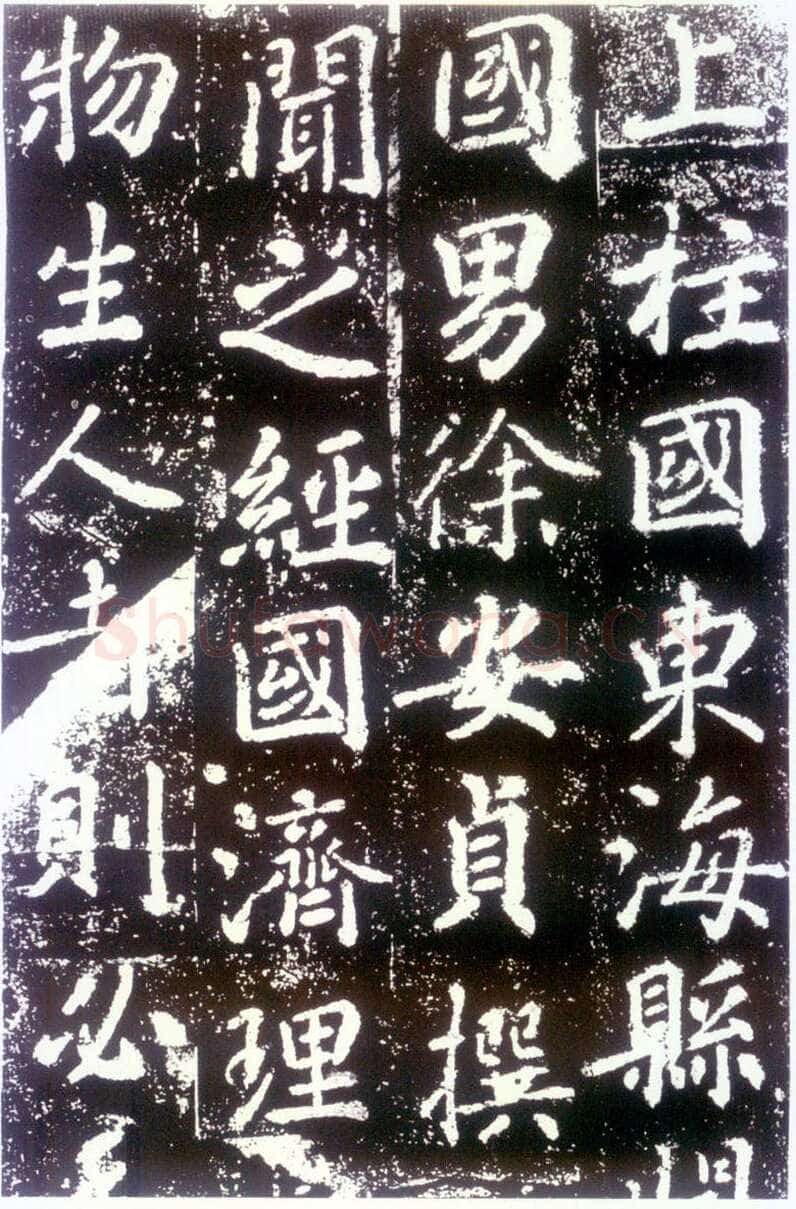 上柱國東海縣
國男徐安貞撰
聞之經國濟理
物生人則必
Shufawang.CN